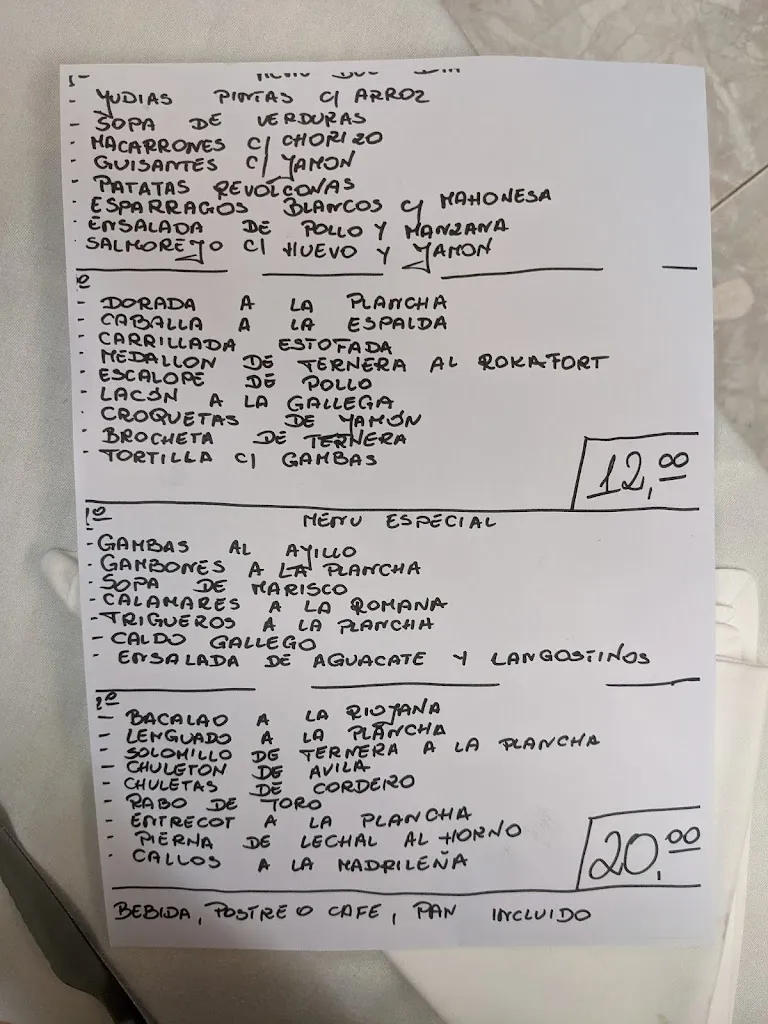 1º MENU DEL DIA
- YUDIAS PINTAS C/ ARROZ
- SOPA DE VERDURAS
- MACARRONES C/ CHORIZO
- GUISANTES C/ JAMON
- PATATAS REVOLCONAS
- ESPARRAGOS BLANCOS C/ MAHONESA
- ENSALADA DE POLLO Y MANZANA
- SALMOREJO C/ HUEVO Y JAMON
º
- DORADA A LA PLANCHA
- CABALLA A LA ESPALDA
- CARRILLADA ESTOFADA
- MEDALLON DE TERNERA AL ROKAFORT
- ESCALOPE DE POLLO
- LACÓN A LA GALLEGA
- CROQUETAS DE JAMÓN
- BROCHETA DE TERNERA
- TORTILLA C/ GAMBAS
12,00
1º MENU ESPECIAL
- GAMBAS AL AJILLO
- GAMBONES A LA PLANCHA
- SOPA DE MARISCO
- CALAMARES A LA ROMANA
- TRIGUEROS A LA PLANCHA
- CALDO GALLEGO
- ENSALADA DE AGUACATE Y LANGOSTINOS
2º
- BACALAO A LA RIOJANA
- LENGUADO A LA PLANCHA
- SOLOMILLO DE TERNERA A LA PLANCHA
- CHULETON DE AVILA
- CHULETAS DE CORDERO
- RABO DE TORO
- ENTRECOT A LA PLANCHA
- PIERNA DE LECHAL AL HORNO
- CALLOS A LA MADRILEÑA
20,00
BEBIDA, POSTRE O CAFE, PAN INCLUIDO